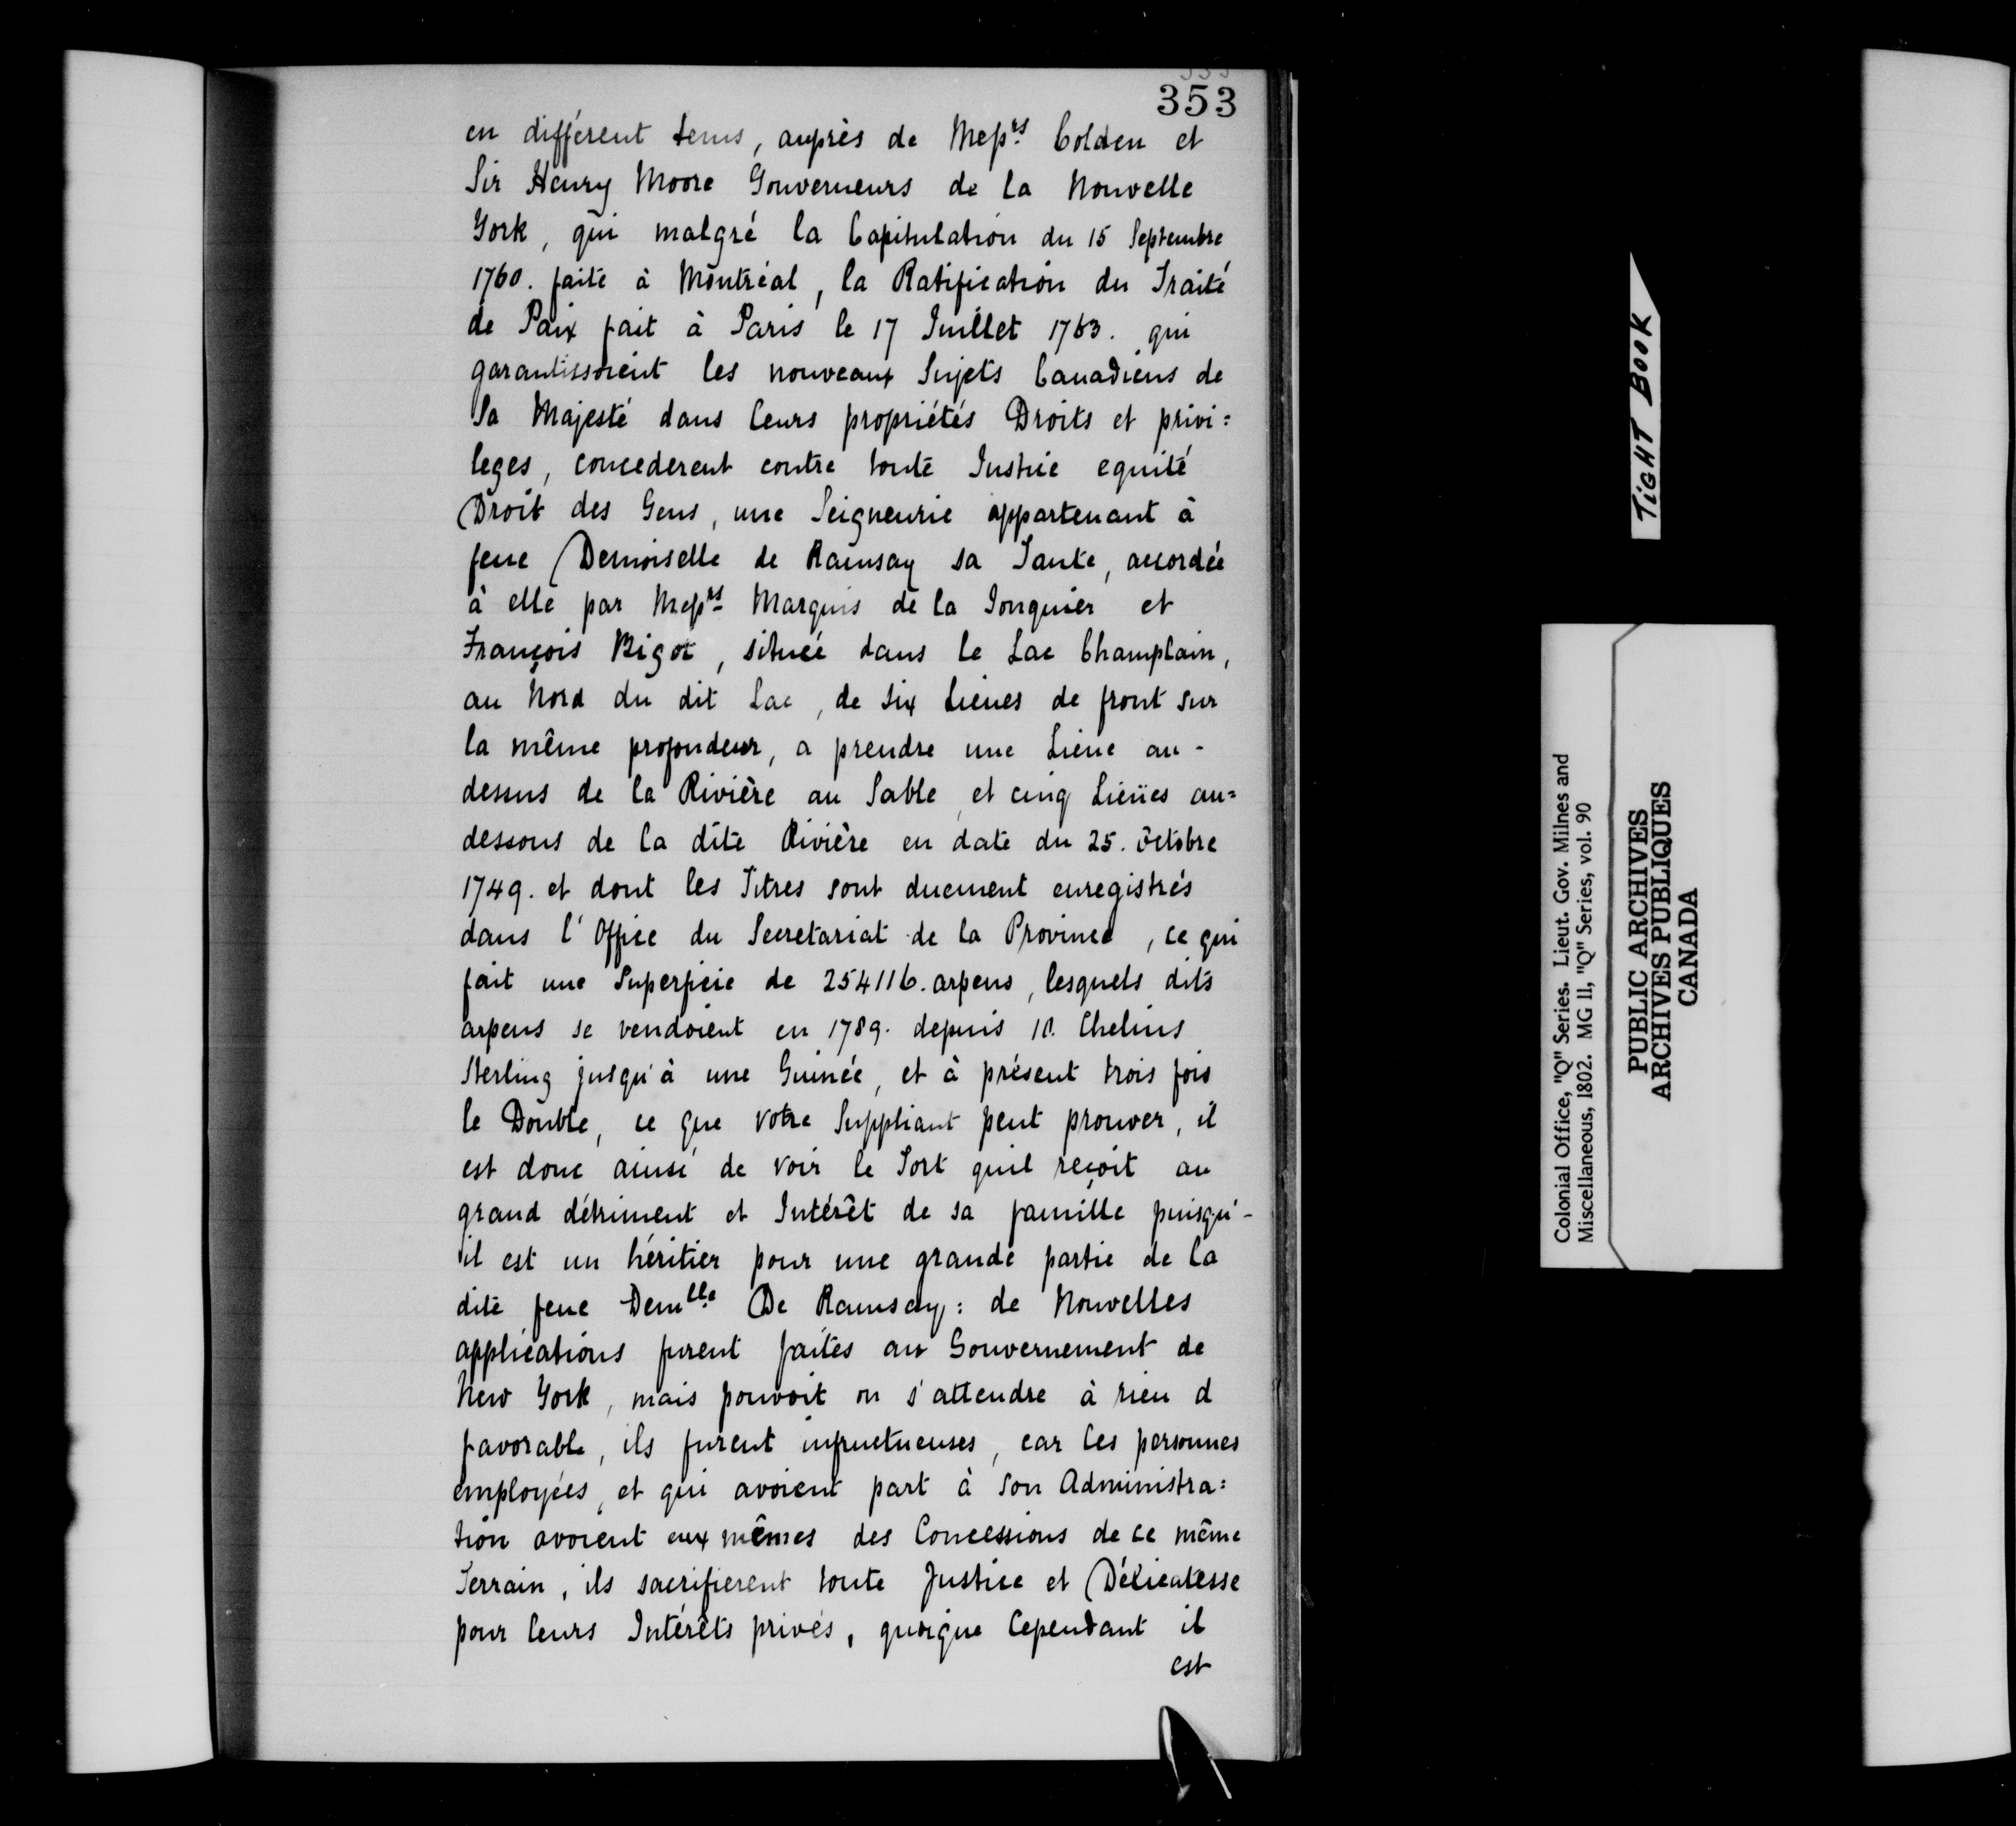 353
en différent tems, auprès de Messrs. Colden et
Sir Henry Moore Gouverneurs de la Nouvelle
York, qui malgré la Capitulation du 15 Septembre
1760. faite à Montréal, la Ratification du Traité
de Paix fait à Paris le 17 Juillet 1763. qui
garantissoient les nouveaux Sujets Canadiens de
Sa Majesté dans leurs propriétés Droits et privi=
leges, concederent contre toute Justice equité
Droit des Gens, une Seigneurie appartenant à
feue Demoiselle de Ramsay sa Tante, accordée
à elle par Messrs. Marquis de la Jonquier et
François Bigot, située dans le Lac Champlain,
au Nord du dit Lac, de six Lieues de front sur
la même profondeur, a prendre une Lieue au-
dessus de la Rivière au Sable, et cinq Lieües au=
dessous de la dite Rivière en date du 25. Octobre
1749. et dont les Titres sont duement enregistrés
dans l'Office du Secretariat de la Province, ce qui
fait une Superficie de 254116. arpens, lesquels dits
arpens se vendoient en 1789. depuis 10. Chelins
Sterling jusqu'à une Guinée, et à présent trois fois
le Double, ce que votre Suppliant peut prouver, il
est donc ainsi de voir le Sort quil reçoit au
grand détriment et Intérêt de sa famille puisqu'-
il est un héritier pour une grande partie de la
dite feue Demlle. De Ramsay: de Nouvelles
applications furent faites au Gouvernement de
New York, mais pouvoit on s'attendre à rien d
favorable, ils furent infructueuses, car les personnes
employées, et qui avoient part à son Administra=
tion avoient eux mêmes des Concessions de ce même
Terrain, ils sacrifierent toute Justice et Délicatesse
pour leurs Intérêts privés, quoique Cependant il
est
TIGHT BOOK
Colonial Office, "Q" Series. Lieut. Gov. Milnes and
Miscellaneous, 1802. MG 11, "Q" Series, vol. 90
PUBLIC ARCHIVES
ARCHIVES PUBLIQUES
CANADA